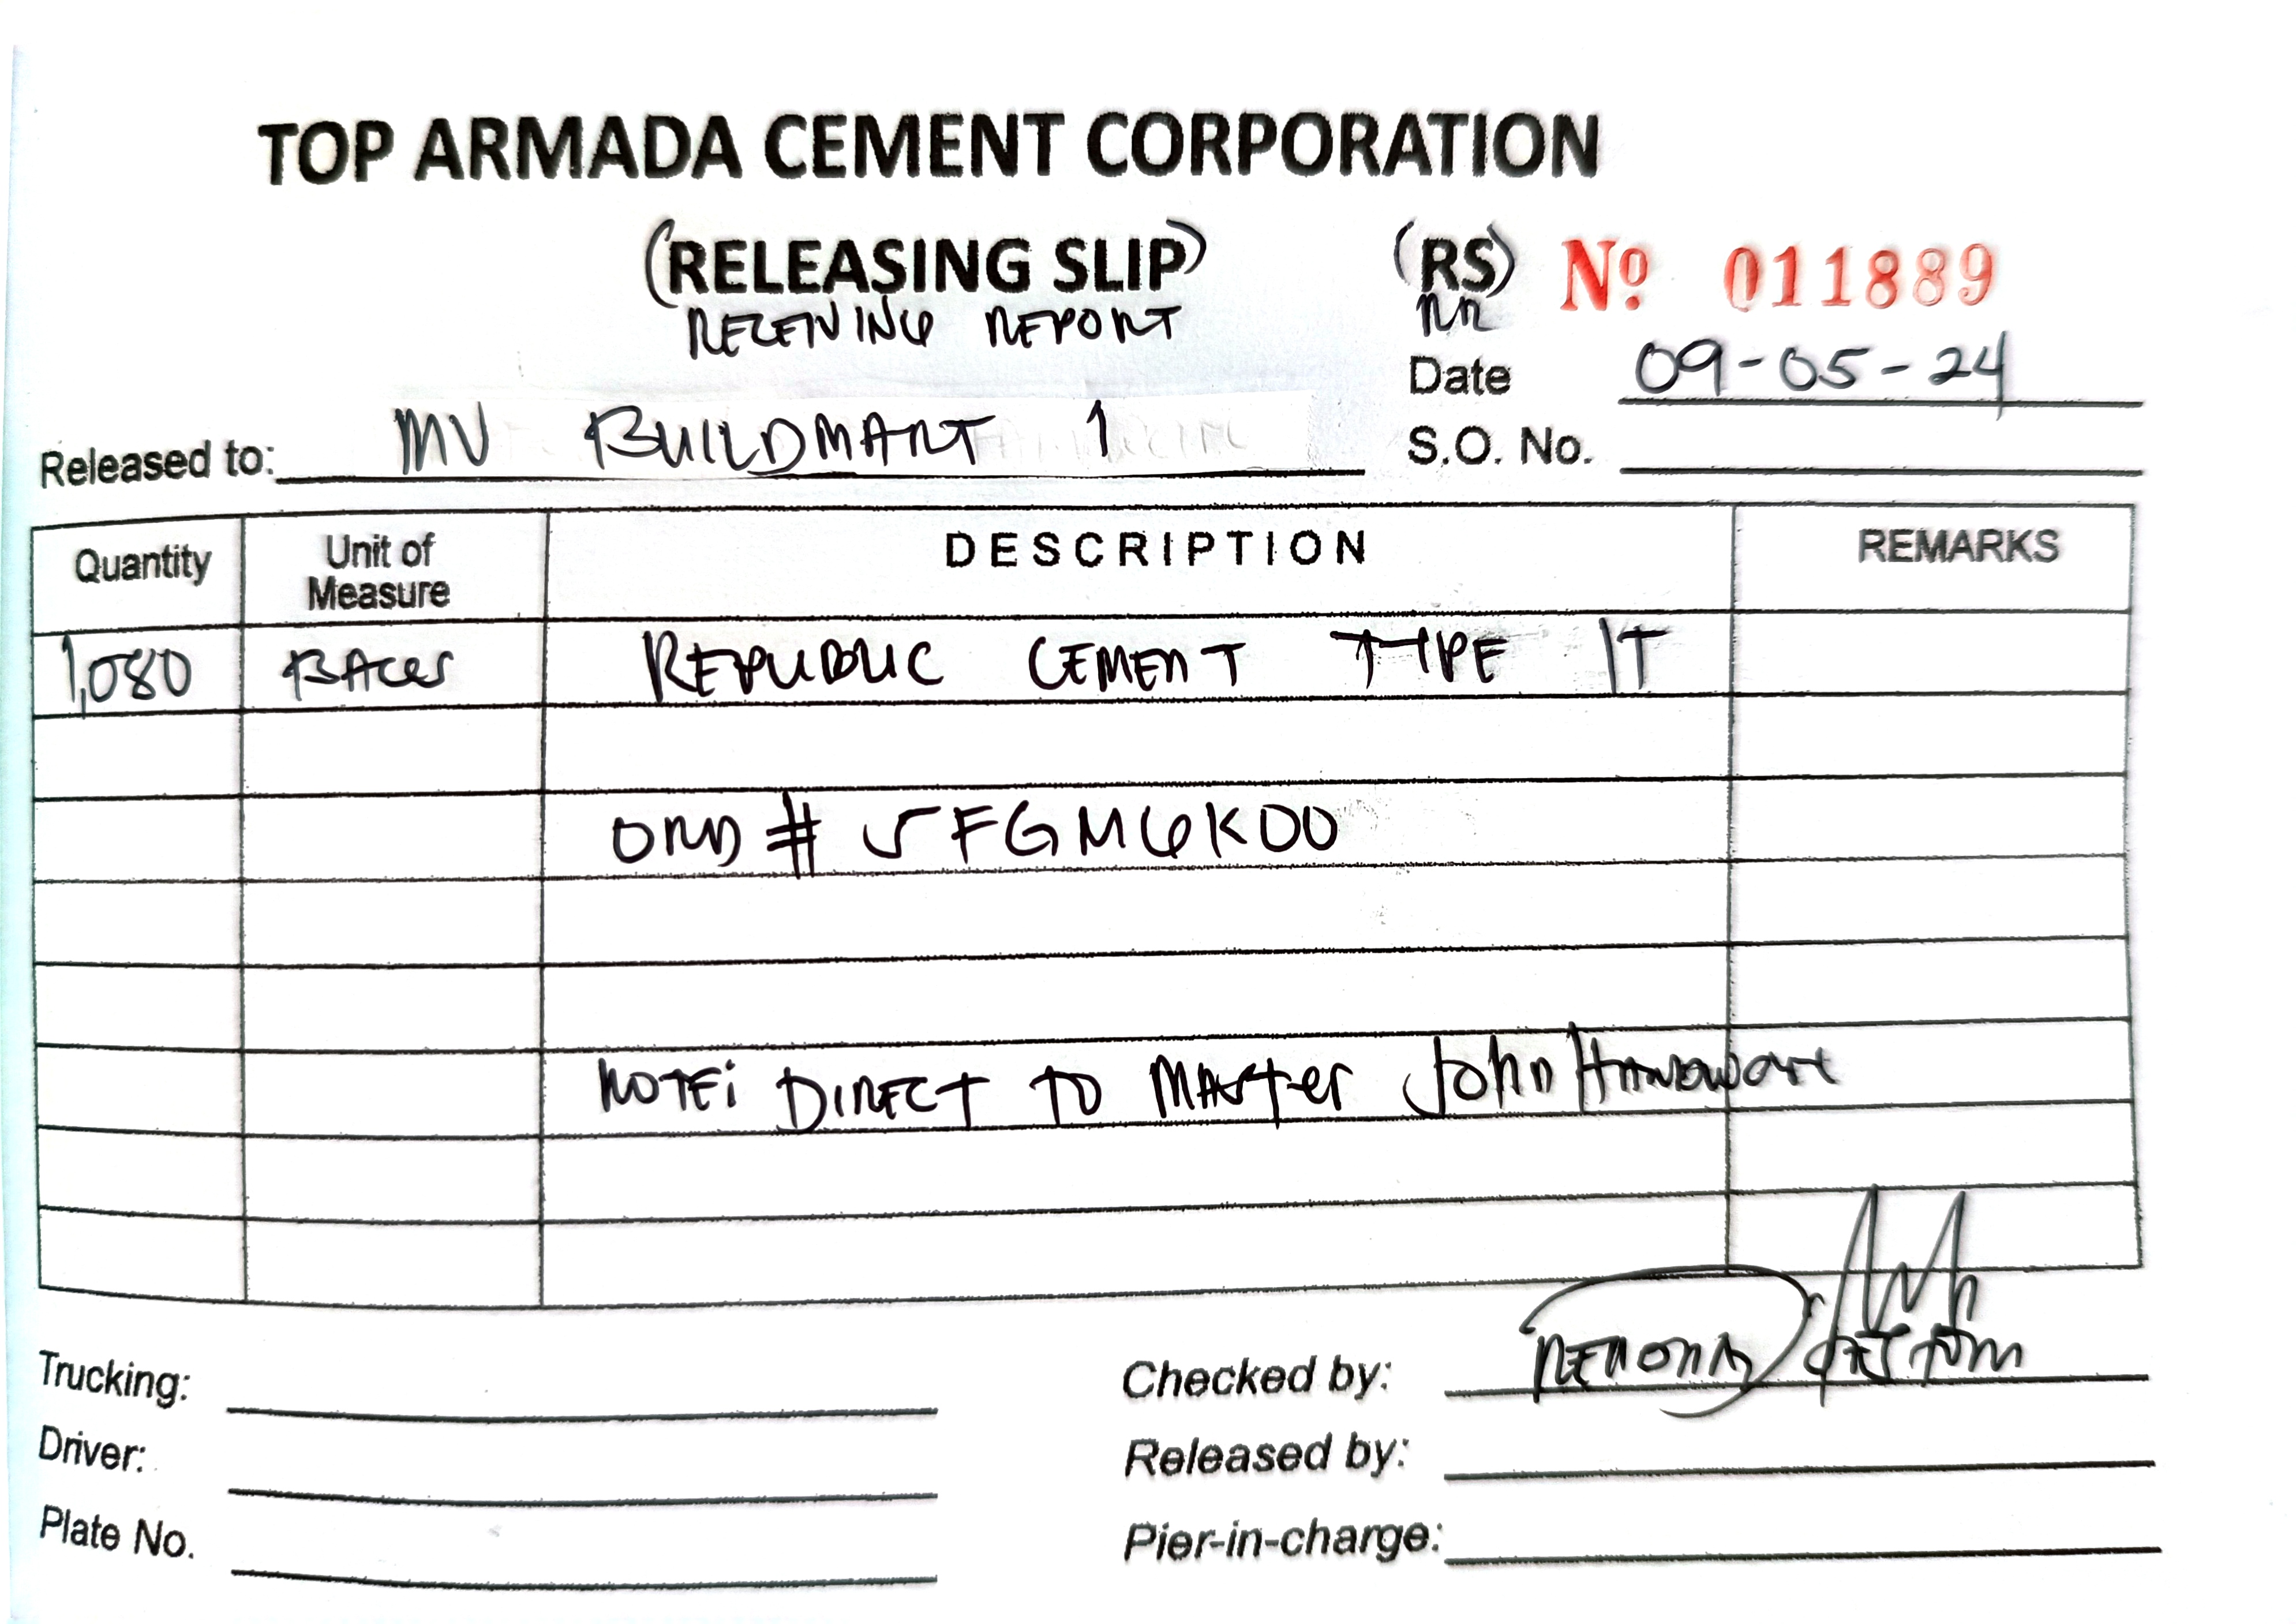 TOP ARMADA CEMENT CORPORATION
(RELEASING SLIP) (RS) Nº 011889
RECEIVING REPORT RR
Date 09-05-24
Released to: MV BUILDMART 1 S.O. No.
Quantity Unit of Measure DESCRIPTION REMARKS
1,080 BAGS REPUBLIC CEMENT TYPE 1T
ORD # 5FGM6K00
NOTE: DIRECT TO MASTER John HARDWARE
Trucking: Checked by:
Driver: Released by:
Plate No. Pier-in-charge: